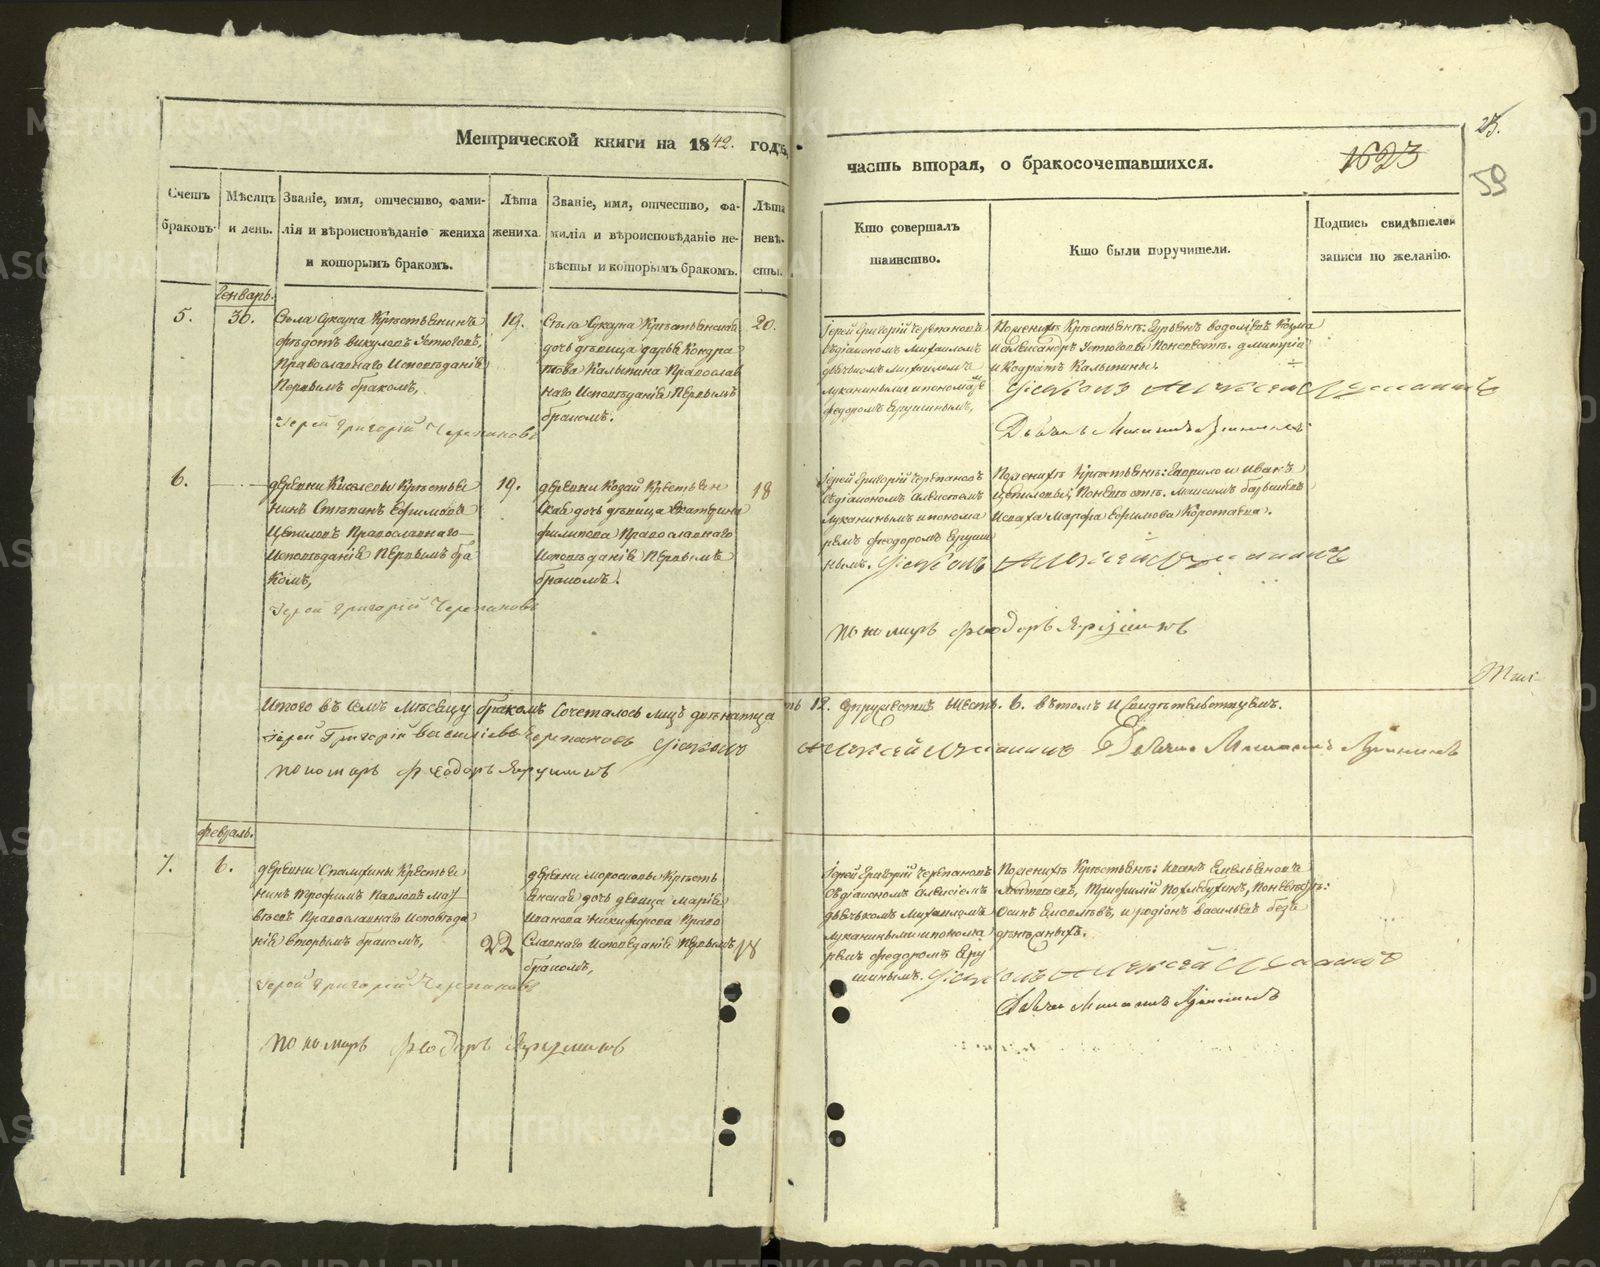 Метрической книги на 1842. годъ,
часть вторая, о бракосочетавшихся.
1623
23.
59
Счетъ
браковъ.
Мѣсяцъ
и день.
Званіе, имя, отчество, фами-
лія и вѣроисповѣданіе жениха
и которымъ бракомъ.
Лѣта
жениха.
Званіе, имя, отчество, фа-
милія и вѣроисповѣданіе не-
вѣсты и которымъ бракомъ.
Лѣта
невѣ-
сты.
Кто совершалъ
таинство.
Кто были поручители.
Подпись свидѣтелей
записи по желанію.
Генварь.
5.
30.
Села Суксуна Крестьянинъ
Федотъ Викуловъ Устюговъ,
Православнаго Исповѣданія
Первымъ бракомъ,
Іерей Григорій Черепановъ
19.
Села Суксуна Крестьянская
дочь дѣвица Дарья Кондра
това Калыпина Православ
наго Исповѣданія Первымъ
бракомъ.
20.
Іерей Григорій Черепановъ
Съ діакономъ
дьячкомъ Михаиломъ
Луканинымъ и пономаре
Федоромъ Ерушинымъ,
По женихѣ Крестьяне:
и Александръ Устюговы По невѣстѣ. Дмитрій
и Кодратъ Калыпины.
Діаконъ Алексей Луканинъ
Дьячекъ Михаилъ Луканинъ
6.
деревни Киселевы Крестья
нинъ Степанъ Ефимовъ
Цепиловъ Православнаго
Исповѣданія Первымъ бра
комъ,
Іерей Григорій Черепановъ
19.
деревни Козай Крестьян
ская дочь дѣвица Екатерина
Филипова Православнаго
Исповѣданія Первымъ
бракомъ.
18
Іерей Григорій Черепановъ
Съ діакономъ Алексіемъ
Луканинымъ и понома
ремъ Федоромъ Еруши
нымъ.
По женихѣ Крестьяне: Гаврило и Иванъ
Цепиловы; По невѣстѣ. Максимъ
Марфа Ефимова Коротаева.
Діаконъ Алексей Луканинъ
Пономарь Феодоръ Ярушинъ
Итого въ семъ Мѣсяцу бракомъ Сочеталось лицъ двенатцать 12. Супружествъ Шесть. 6. въ томъ и Свидѣтельствуемъ.
Іерей Григорій Васильевъ Черепановъ Діаконъ Алексей Луканинъ Дьячекъ Михаилъ Луканинъ
Пономарь Феодоръ Ярушинъ
Февраль.
7.
6.
деревни Крестья
нинъ Трофимъ Павловъ Мат
вѣевъ Православнаго Исповѣда
нія вторымъ бракомъ,
Іерей Григорій Черепановъ
22
деревни Моросковы Кресть
янская дочь девица Марія
Иванова Никифорова Право
славнаго Исповѣданія Первымъ
бракомъ,
18
Іерей Григорій Черепановъ
Съ діакономъ Алексіемъ
дьячкомъ Михаиломъ
Луканинымъ и понома
ремъ Федоромъ Еру
шинымъ.
По женихѣ Крестьяне: Иванъ Емельяновъ
По невѣстѣ:
и родіонъ Васильевъ безъ
денежныхъ.
Діаконъ Алексей Луканинъ
Дьячекъ Михаилъ Луканинъ
Пономарь Феодоръ Ярушинъ
METRIKI.GASO-URAL.RU